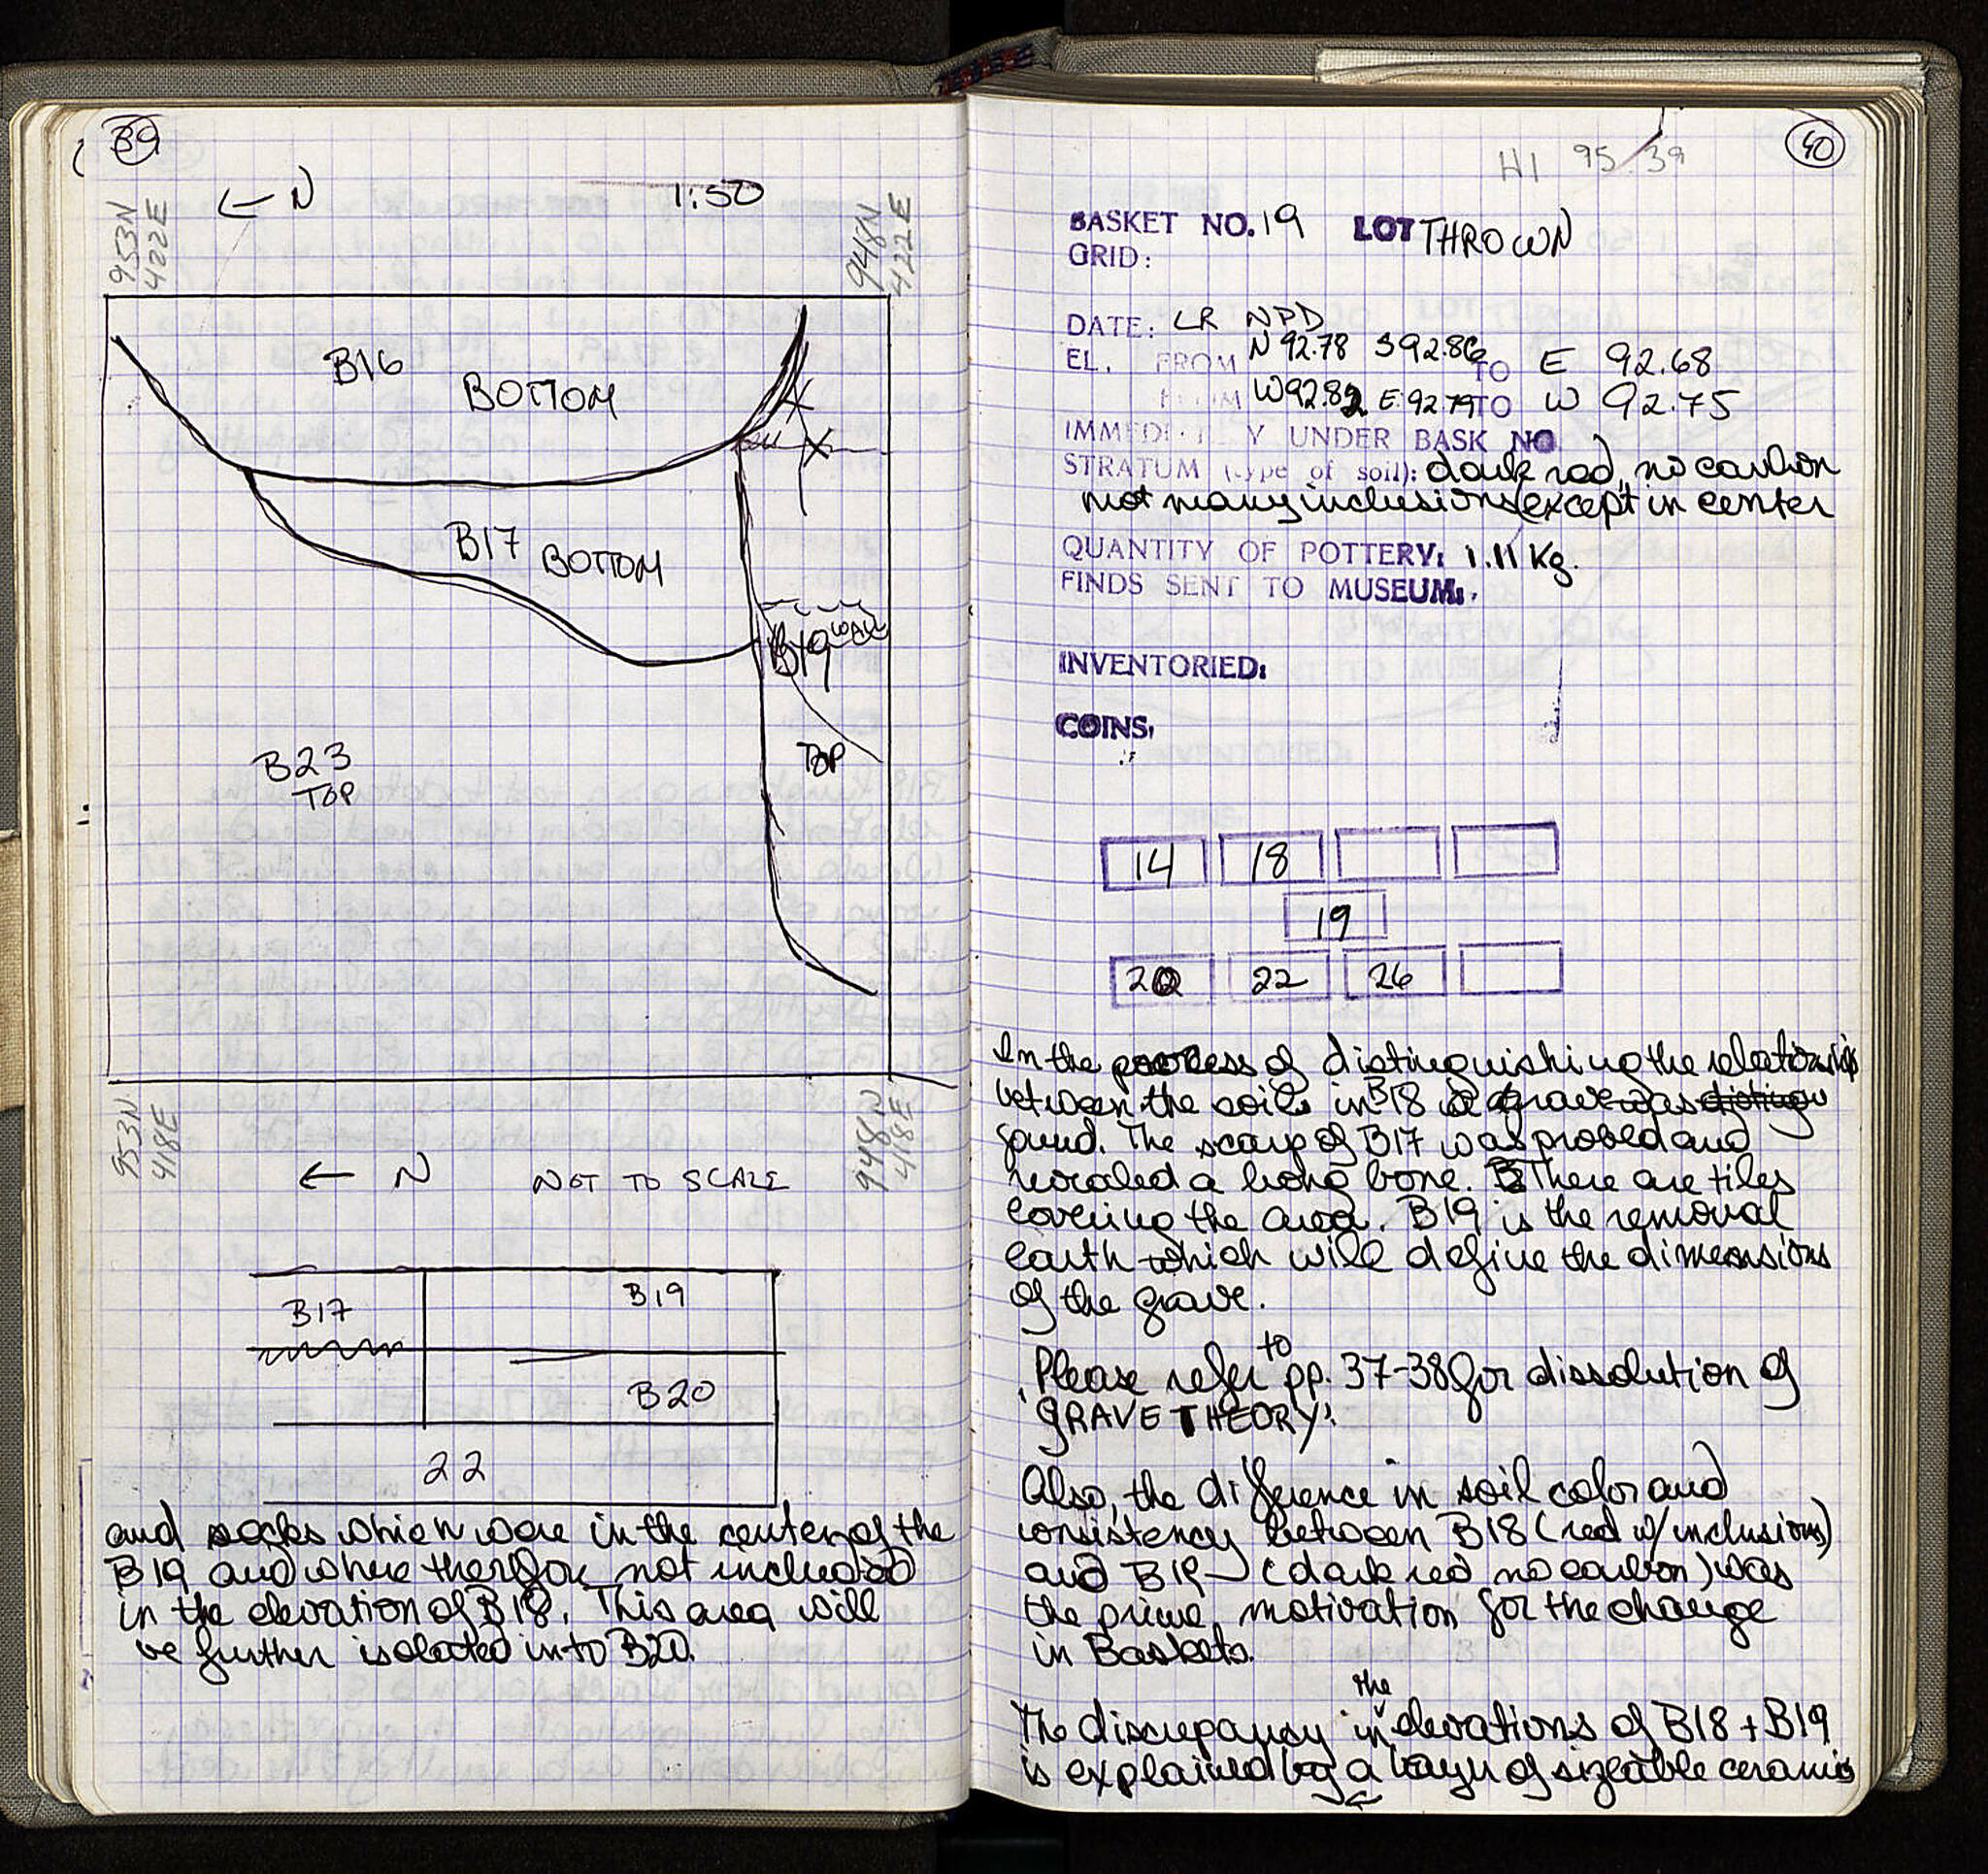 39
← N
1:50
953N
422E
948N
422E
B16
BOTTOM
B17 BOTTOM
WALL
B19
B23
TOP
TOP
953N
418E
948N
418E
← N NOT TO SCALE
B17
B19
B20
22
and rocks which were in the center of the
B19 and where therefore not included
in the elevation of B18. This area will
be further isolated into B20.
40
HI 95.39
BASKET NO. 19 LOT THROWN
GRID:
DATE: LR NPD
EL. FROM N 92.78 S 92.86 TO E 92.68
FROM W 92.82 E 92.79 TO W 92.75
IMMEDI Y UNDER BASK NO.
STRATUM (type of soil): dark red, no carbon
not many inclusions (except in center
QUANTITY OF POTTERY: 1.11 Kg.
FINDS SENT TO MUSEUM:
INVENTORIED:
COINS:
14 18
19
20 22 26
In the process of distinguishing the relationship
between the soils in B18 a grave was disting
found. The scarp of B17 was probed and
revealed a long bone. There are tiles
covering the area. B19 is the removal
earth which will define the dimensions
of the grave.
Please refer to pp. 37-38 for dissolution of
'GRAVE THEORY'.
Also, the difference in soil color and
consistency between B18 (red w/ inclusions)
and B19 (dark red no carbon) was
the prime motivation for the change
in Baskets.
The discrepancy in the elevations of B18 + B19
is explained by a layer of sizeable ceramics